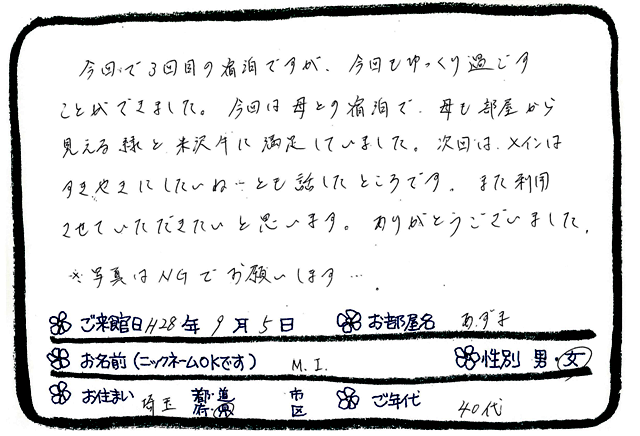 今回で3回目の宿泊ですが、今回もゆっくり過ごす
ことができました。今回は母との宿泊で、母も部屋から
見える緑と米沢牛に満足していました。次回は、メインは
すきやきにしたいねーとも話したところです。また利用
させていただきたいと思います。ありがとうございました。
※写真はNGでお願いします…。
ご来館日 H28年 9月 5日 お部屋名 あずま
お名前(ニックネームOKです) M.I. 性別 男・女
お住まい 埼玉 都道府県 市区 ご年代 40代